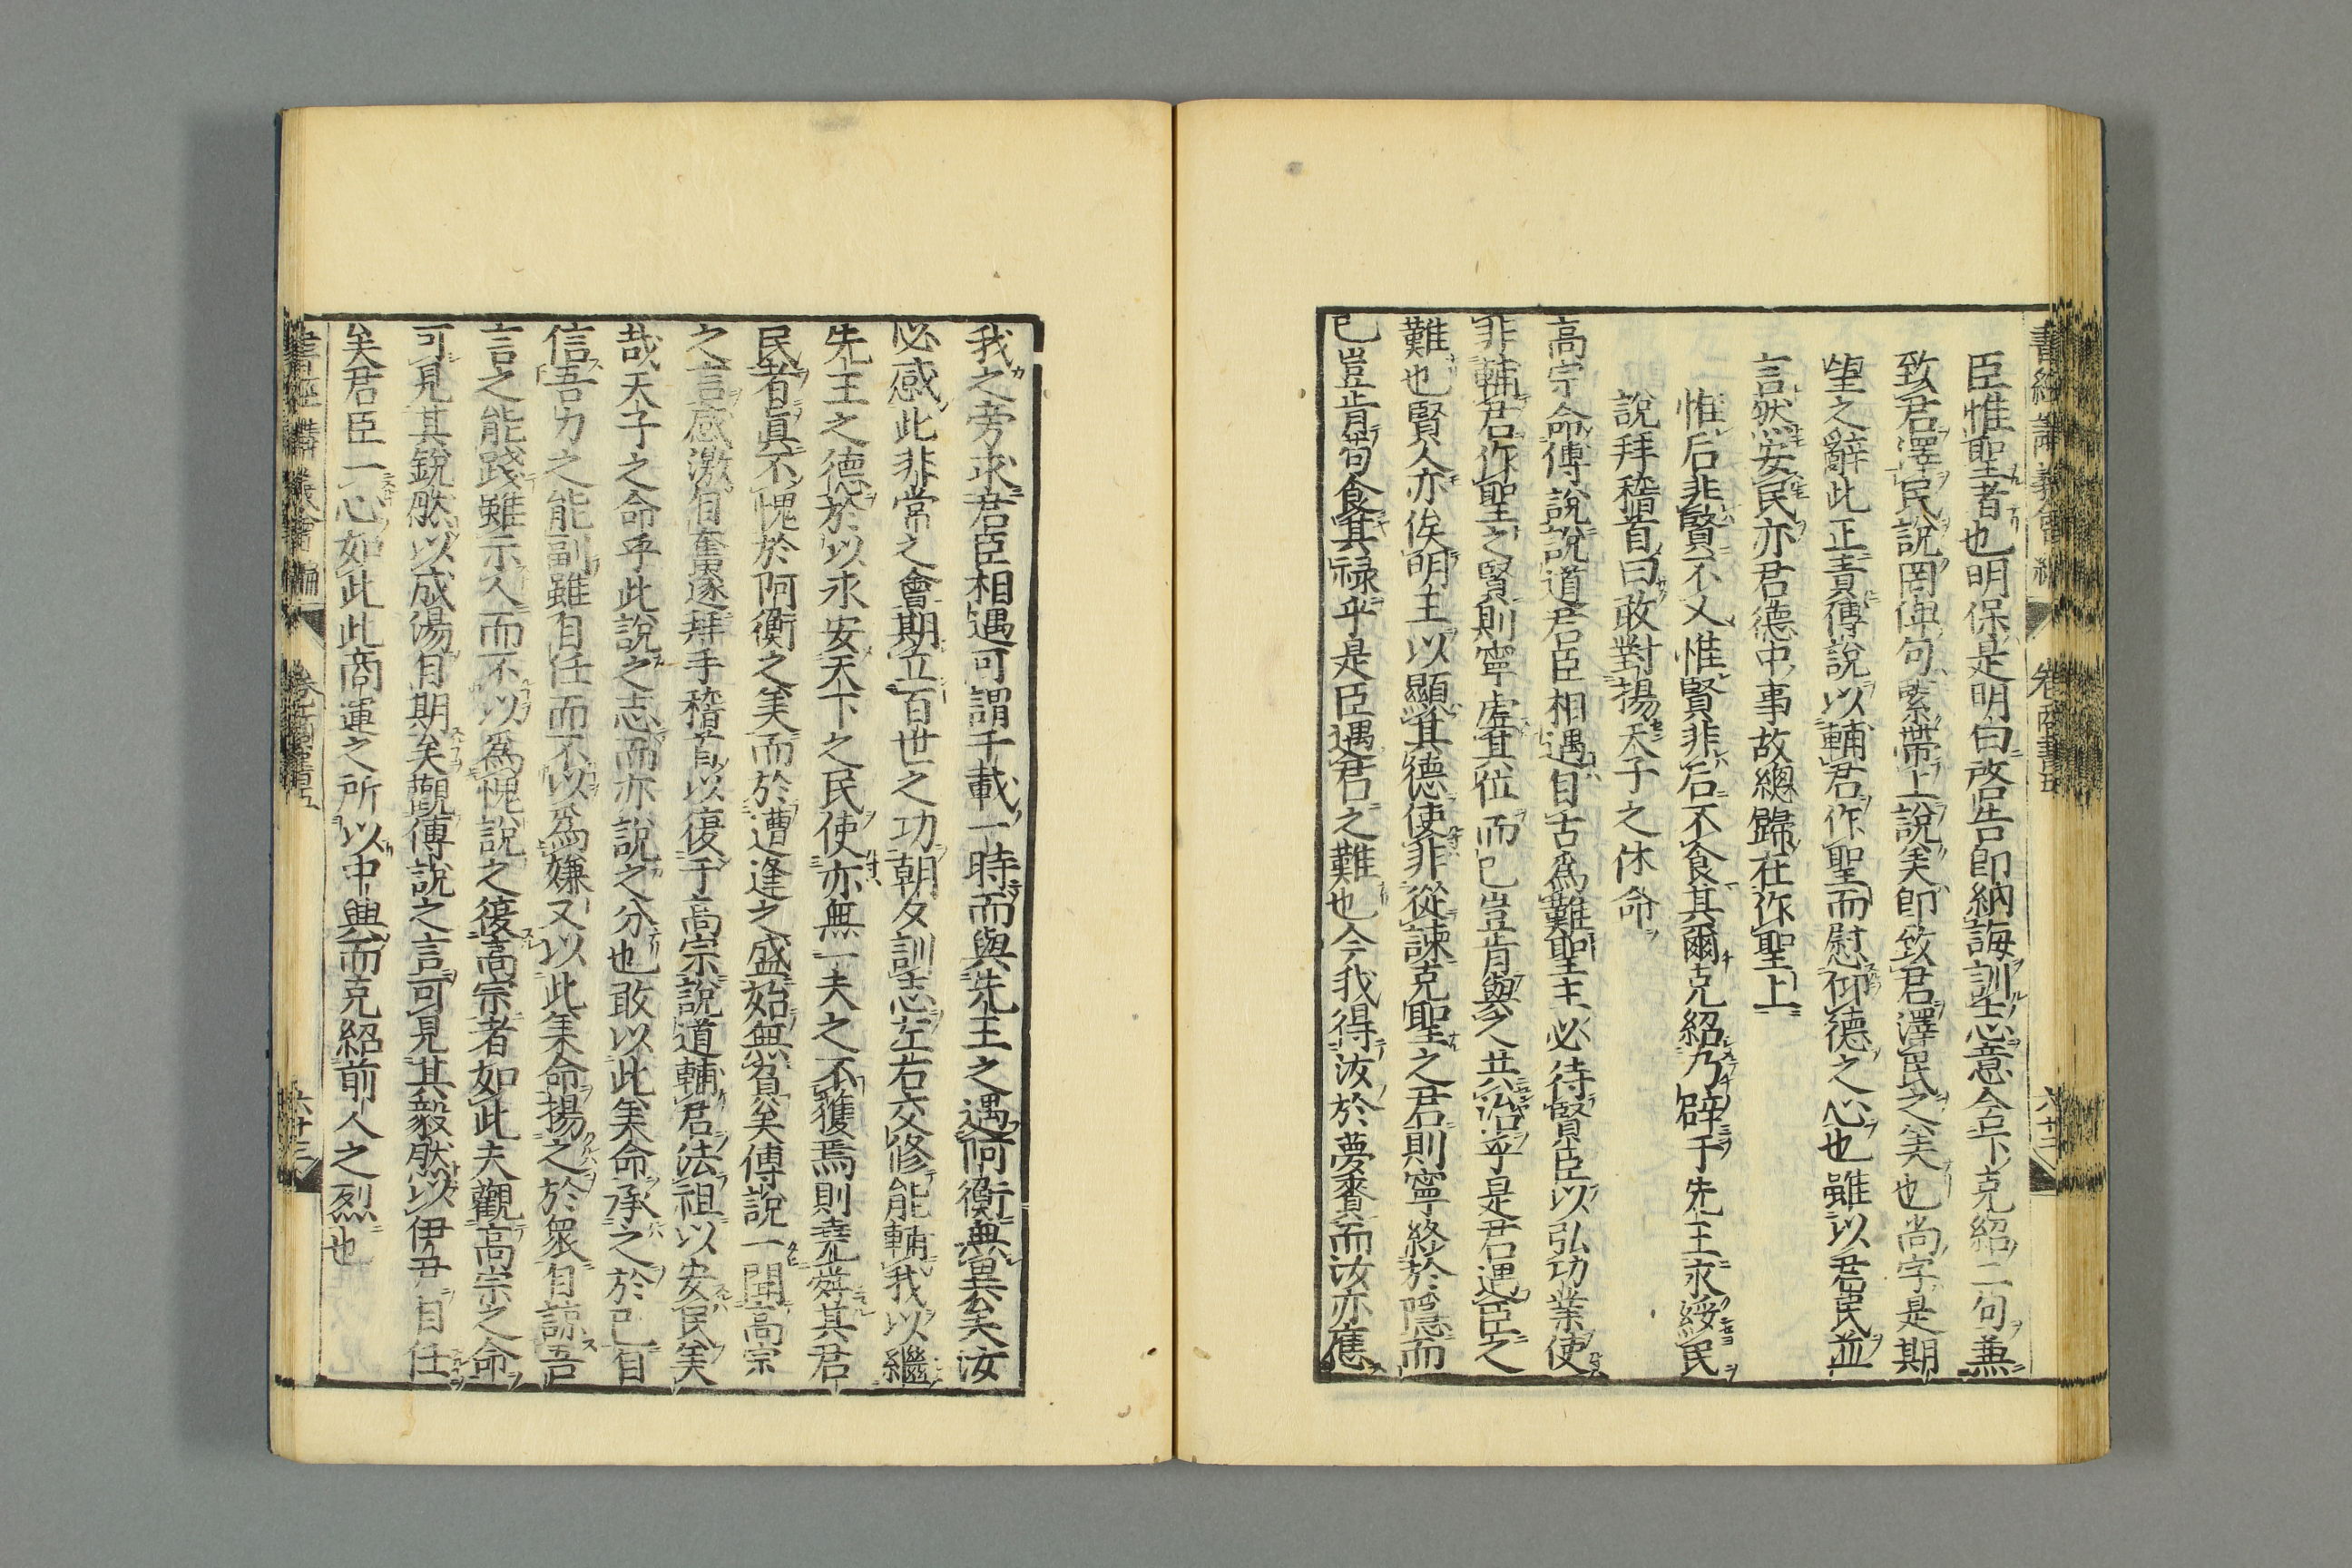 書經講義會編 卷五商書 六十二
臣惟聖者也明保是明白啓告即納誨訓志意合下克紹二句兼
致君澤民說罔俾句緊帶上說美即致君澤民之美也尚字是期
望之辭此正責傅說以輔君作聖而慰仰德之心也雖以君民並
言然安民亦君德中事故總歸在作聖上
惟后非賢不乂惟賢非后不食其爾克紹乃辟于先王永綏民
說拜稽首曰敢對揚天子之休命
高宗命傅說說道君臣相遇自古爲難聖主必待賢臣以弘功業使
非輔君作聖之賢則寧虛其位而已豈肯與之共治乎是君遇臣之
難也賢人亦俟明主以顯其德使非從諫克聖之君則寧終於隱而
已豈肯苟食其祿乎是臣遇君之難也今我得汝於夢賚而汝亦應
我之旁求君臣相遇可謂千載一時而與先王之遇阿衡無異矣汝
必感此非常之會期立百世之功朝夕訓志左右交修能輔我以繼
先王之德於以永安天下之民使亦無一夫之不獲焉則堯舜其君
民者眞不愧於阿衡之美而於遭逢之盛始無負矣傅說一聞高宗
之言感激自奮遂拜手稽首以復于高宗說道輔君法祖以安民美
哉天子之命乎此說之志而亦說之分也敢以此美命承之於己自
信吾力之能副雖自任而不以爲嫌又以此美命揚之於衆自諒吾
言之能踐雖示人而不以爲愧說之復高宗者如此夫觀高宗之命
可見其銳然以成湯自期矣觀傅說之言可見其毅然以伊尹自任
矣君臣一心如此此商運之所以中興而克紹前人之烈也
書經講義會編 卷五商書五 六十二